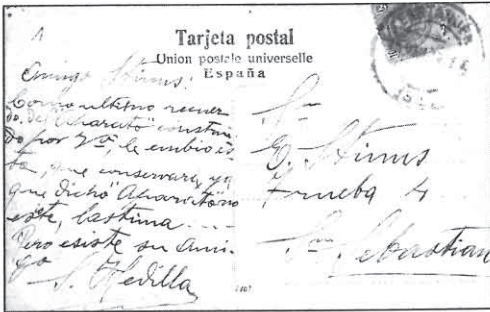 1
Tarjeta postal
Union postale universelle
España
Amigo Stinus:
Como ultimo recuer
do del "Acharatú" construi
do por Vd, le embio es
ta, que conservara, ya
que dicho no
esiste, lastima ----
Pero esiste su ami-
go
S. Hedilla
Sr
E. Stinus
Prueba 4
San Sebastian